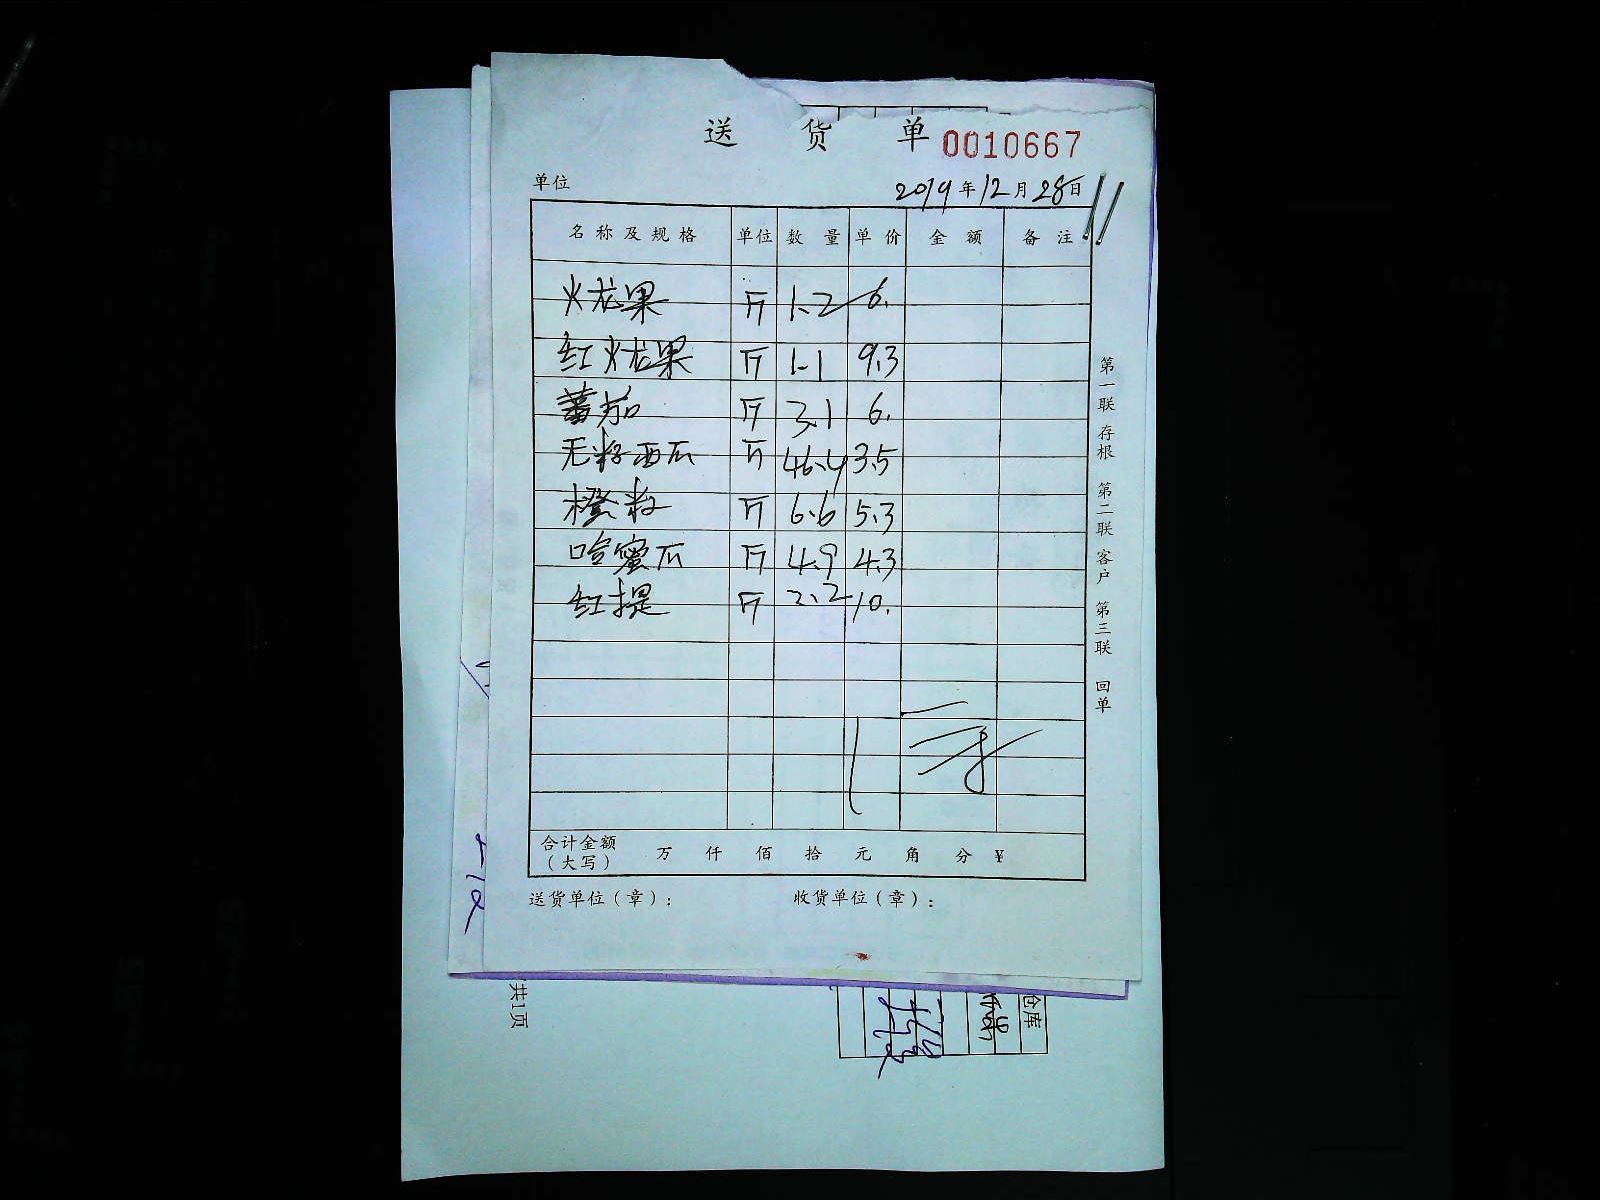 送 货 单 0010667
单位 2019年12月28日
名称及规格 单位 数量 单价 金额 备注
火龙果 斤 1.2 6.
红火龙果 斤 1.1 9.3
蕃茄 斤 3.1 6.
无籽西瓜 斤 46.4 3.5
橙 斤 6.6 5.3
哈蜜瓜 斤 4.9 4.3
红提 斤 2.2 10.
合计金额（大写） 万 仟 佰 拾 元 角 分 ¥
送货单位（章）： 收货单位（章）：
第一联 存根 第二联 客户 第三联 回单
共1页
仓库